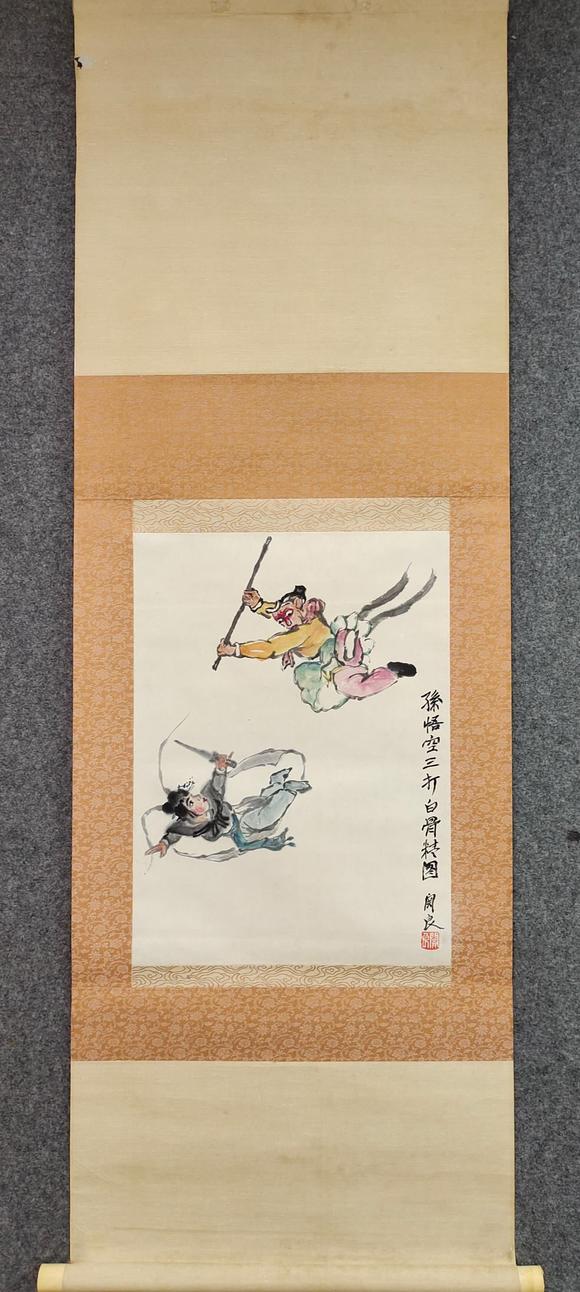 孫悟空三打白骨精图
関良